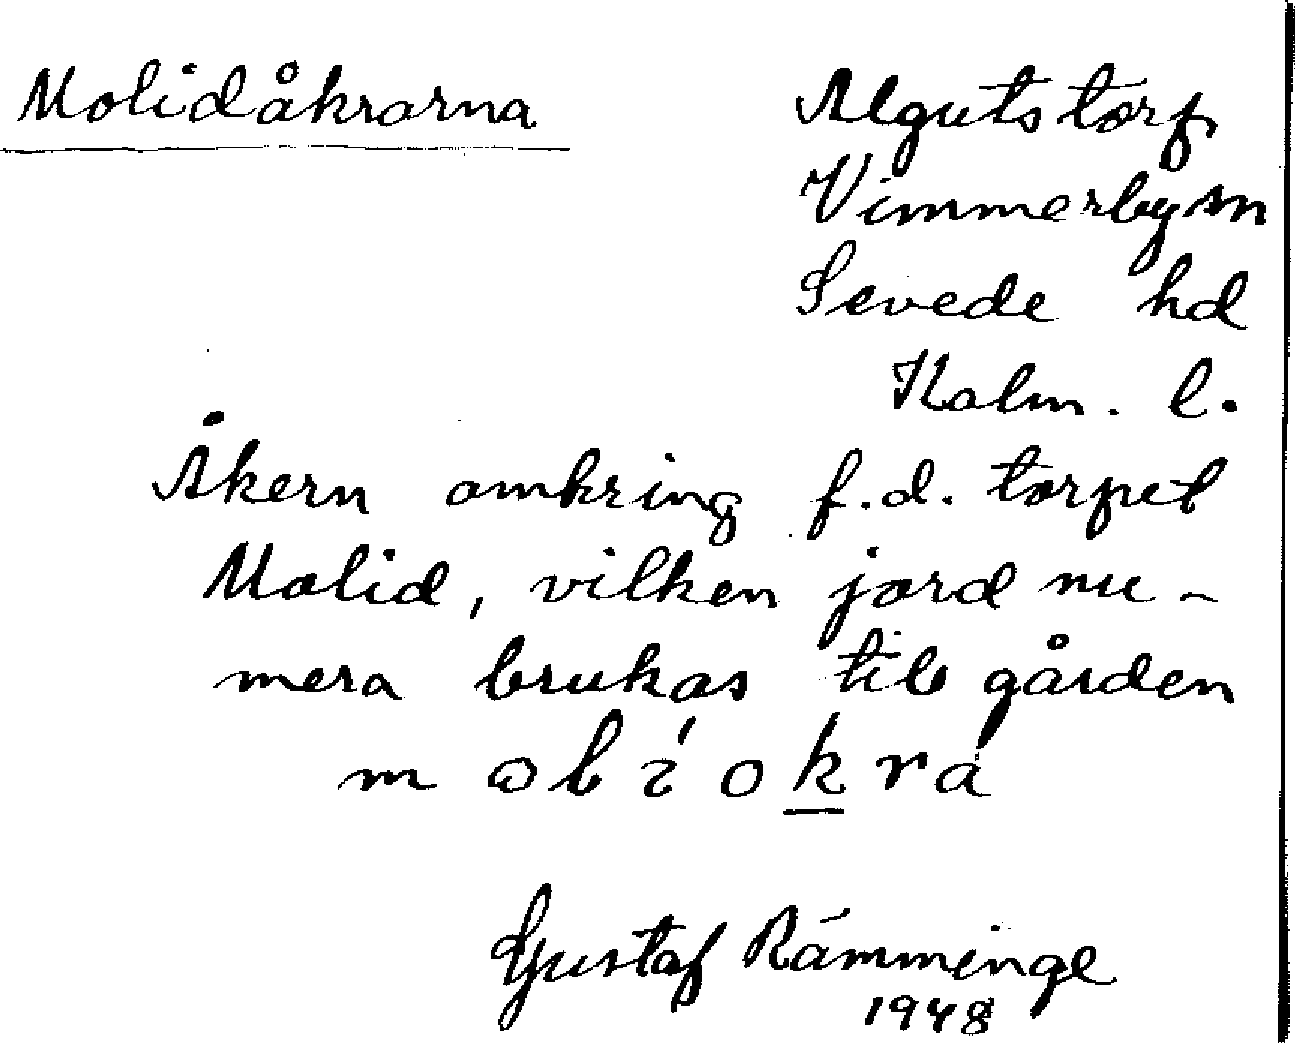 Molidåkrarna
Algutstorp
Vimmerby sn
Sevede hd
Kalm. l.
Åkern omkring f.d. torpet
Molid, vilken jord nu-
mera brukas till gården
Gustaf Rämminge
1948